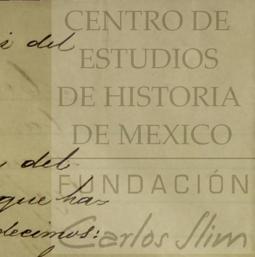 del
CENTRO DE
ESTUDIOS
DE HISTORIA
DE MEXICO
del
FUNDACIÓN
que ha-
decimos:
Carlos Slim